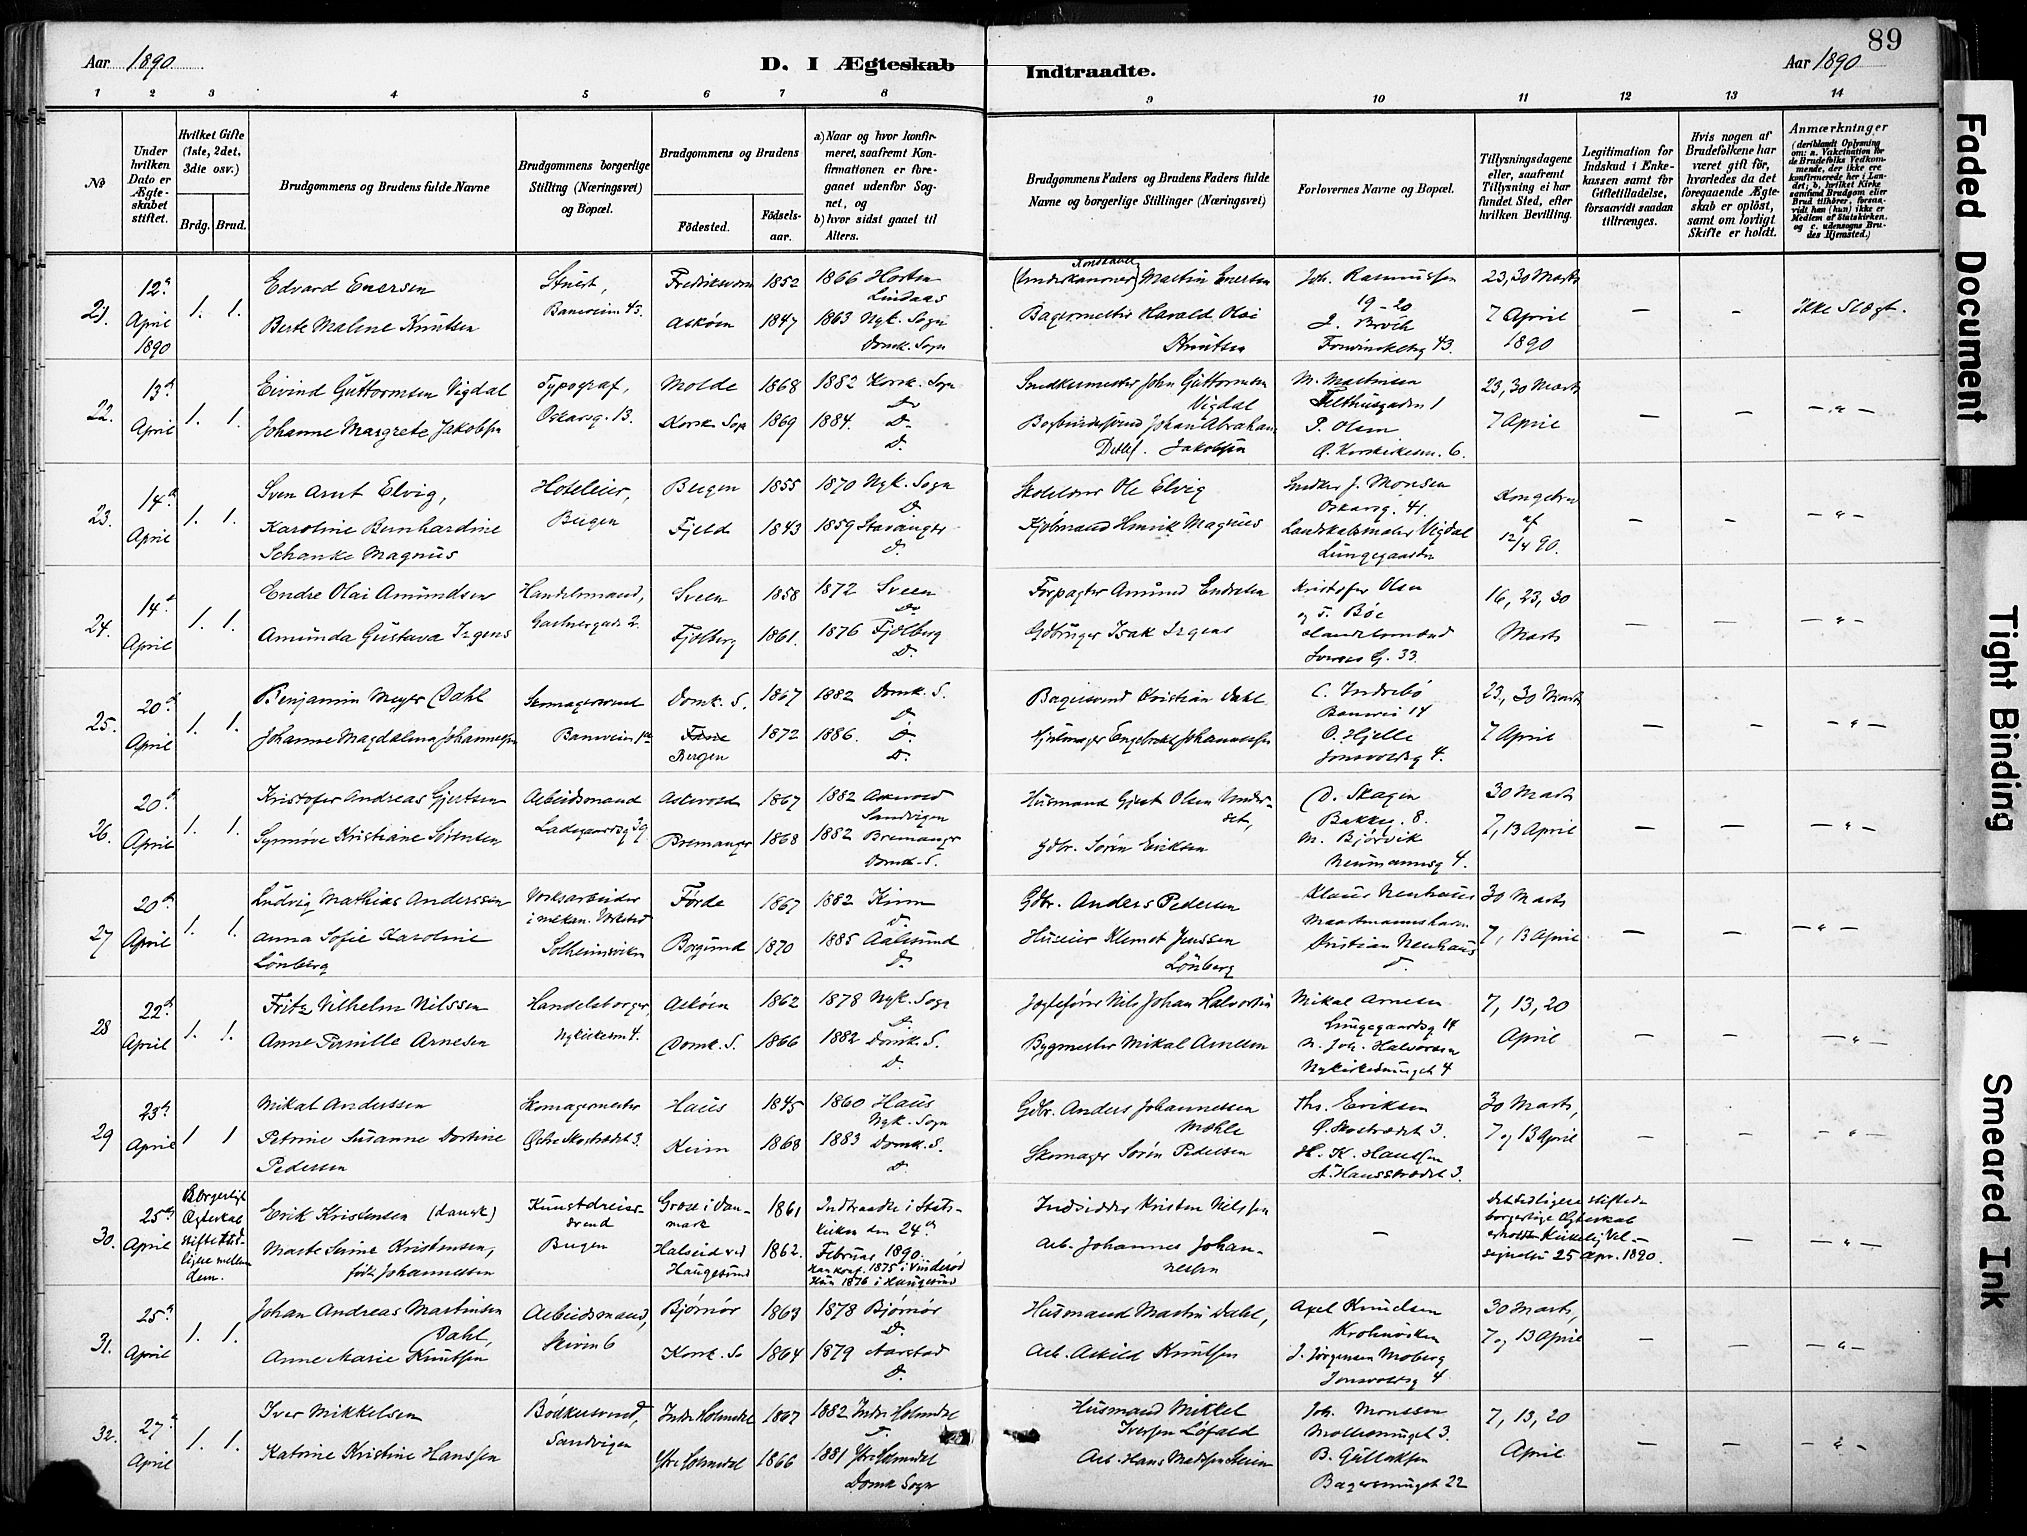 89
Aar 1890.
D. I Ægteskab
Indtraadte.
Aar 1890
1 2 3 4 5 6 7 8 9 10 11 12 13 14
№
Under hvilken Dato er Ægteskabet stiftet.
Hvilket Gifte (1ste, 2det, 3die osv.)
Brdg. Brud.
Brudgommens og Brudens fulde Navne
Brudgommens borgerlige Stilling (Næringsvei) og Bopæl.
Brudgommens og Brudens
Fødested.
Fødselsaar.
a) Naar og hvor konfirmeret, saafremt Konfirmationen er foregaaet udenfor Sognet, og
b) hvor sidst gaaet til Alters.
Brudgommens Faders og Brudens Faders fulde Navne og borgerlige Stillinger (Næringsvei)
Forlovernes Navne og Bopæl.
Tillysningsdagene eller, saafremt Tillysning ei har fundet Sted, efter hvilken Bevilling.
Legitimation for Indskud i Enkekassen samt for Giftetilladelse, forsaavidt saadan tiltrænges.
Hvis nogen af Brudefolkene har været gift før, hvorledes da det foregaaende Ægteskab er opløst, samt om lovligt Skifte er holdt.
Anmærkninger (deriblandt Oplysning om: a. Vakcination for de Brudefolks Vedkommende, der ikke ere konfirmerede her i Landet; b. hvilket Kirkesamfund Brudgom eller Brud tilhører, forsaavidt han (hun) ikke er Medlem af Statskirken, og c. udensogns Brudes Hjemsted.)
21. 12te April 1890 1. 1.
Edvard Enersen
Berte Malene Knutsen
Stuert,
Baneveien 43.
Fredriksværn 1852 1866 Horten
Lindaas
Askøen 1847 1863 Nyk. Sogn
Domk. Sogn
(Underkanoner) Martin Enersen
Bagermester Harald Olai
Knutsen
Joh. Rasmussen
19-20
J. Broch
23, 30 Marts
7 April
1890
Ikke Slægt.
22. 13de April 1. 1.
Eivind Guttormsen Vigdal
Johanne Margrete Jakobsen
Typograf,
Oskarsg. 13.
Molde 1868 1882 Korsk. Sogn
Do
Korsk. Sogn 1869 1884. D.
D.
Snedkermester John Guttormsen
Vigdal
Bogbindersvend Johan Abraham
Detlef. Jakobsen
M. Martinsen
Filthusgaden 1
P. Olsen
Ø. Korskirkesm. 6.
23, 30 Marts
7 April
23. 14de April 1. 1.
Sven Arnt Elvig,
Karoline Bernhardine
Schanke Magnus
Hoteleier,
Bergen
Bergen 1855 1870 Nyk. Sogn
D.
Fjeld 1843 1859 Stavanger
D.
Skolelærer Ole Elvig
Kjøbmand Henrik Magnus
Snedker J. Monsen
Oskarsg. 41.
Landskabsmaler Vigdal
Lungegaarden
Kongebrev
af
12/4 90.
24. 14de April 1. 1.
Endre Olai Amundsen
Amunda Gustava Irgens
Handelsmand,
Gartnergade 2.
Sveen 1858 1872 Sveen
Do
Fjelberg 1861. 1876 Fjelberg
D.
Forpagter Amund Endresen
Gdbruger Isak Irgens
Kristofer Olsen
og T. Bøe
Handelsmænd
16, 23, 30
Marts
25. 20de April 1. 1.
Benjamin Meyer Dahl
Johanne Magdalena Johannesen
Skomagersvend
Domk. S. 1867 1882 Domk. S.
D.
Fane
Bergen 1872 1886. D.
D.
Bagersvend Kristian Dahl
Hjulmager Engebrikt Johannessen
C. Indrebø
Banevei 14
O. Hjelle
Jonsvoldsg 4.
23, 30 Marts
7 April
26. 20de April 1. 1.
Kristofer Andreas Gjertsen
Synnøve Kristiane Sørensen
Arbeidsmand
Ladegaardsg 39
Askvold 1867 1882 Askvold
Sandvigen
Bremanger 1868 1882 Bremanger
Domk. S.
Husmand Gjert Olsen Underset,
Gdbr. Søren Eriksen
D. Skagen
Bakkeg. 8.
M. Bjørvik
Neumannsg 4.
30 Marts
7, 13 April
27 20de April 1. 1.
Ludvig Mathias Anderssen
Anna Sofie Karoline
Lønberg
Verksarbeider
i mekan. Verksted
Solheimsviken
Førde 1867 1882 Kinn
D.
Borgund 1870 1885 Aalesund
D.
Gdbr. Anders Pedersen
Huseier Klemet Jenssen
Lønberg
Klaus Neuhaus
Kristian Neuhaus
D.
30 Marts
7, 13 April
28 22de April 1. 1.
Fritz Vilhelm Nilssen
Anne Pernille Arnesen
Handelsborger,
Nykirkesm 4.
Askøen 1862 1878 Nyk. Sogn
D.
Domk. S. 1866 1882 Domk. S.
D.
Jægtefører Nils Johan Halvorsen
Bygmester Mikal Arnesen
Mikal Arnesen
Lungegaardsg 14
N. Joh. Halvorsen
Nykirkesmuget 4
7, 13, 20
April
29 23de April 1 1
Mikal Anderssen
Petrine Susanne Dortine
Pedersen
Skomagermester
Øvre Kostrædet 3.
Haus 1845 1860 Haus
Nyk. Sogn
Keim 1868 1883 Domk. S.
D.
Gdbr. Anders Johannessen
Mæhle
Skomager Søren Pedersen
Ths. Eriksen
H. K. Hanssen
30 Marts,
7 og 13 April
30. 25de April
Borgerligt Ægteskab stiftet tidligere mellem dem.
Erik Kristensen (dansk)
Marte Serine Kristensen,
født Johannessen
Kunstdreiersvend
Bergen
Græse i Danmark 1861
Halseid ved Haugesund 1862.
Indtraadte i Statskirken den 24de Februar 1890.
Han konf. 1875 i Vinderød
Hun 1876 i Haugesund
Indsidder Kristen Nilssen
Arb. Johannes Johannessen
Det tidligere stiftede
borgerlige Ægteskab
erholdt Kirkelig Velsignelse 25 Apr. 1890.
31. 25de April 1. 1.
Johan Andreas Martinsen
Dahl,
Anne Marie Knutsen
Arbeidsmand,
Skiven 6
Bjørnør 1863 1878 Bjørnør
D.
Korsk. So 1864 1879 Aarstad
D.
Husmand Martin Dahl,
Arb. Askild Knutsen
Axel Knudsen
Krohnviken
J. Jørgensen Moberg
Jonsvoldsg 4
30 Marts,
7 og 13 April
32. 27de April 1. 1.
Iver Mikkelsen
Katrine Kristine Hanssen
Bødkersvend,
Sandvigen
Indr. Holmedal 1867 1882 Indr. Holmedal
D.
Ytr. Holmedal 1866 1881 Ytr. Holmedal
Domk Sogn
Husmand Mikkel
Iversen Løfald
Arb. Hans Madsen
Joh. Monssen
Møllesmuget 3.
B. Gullaksen
Bagersmuget 22
7, 13, 20
April
Faded Document
Tight Binding
Smeared Ink